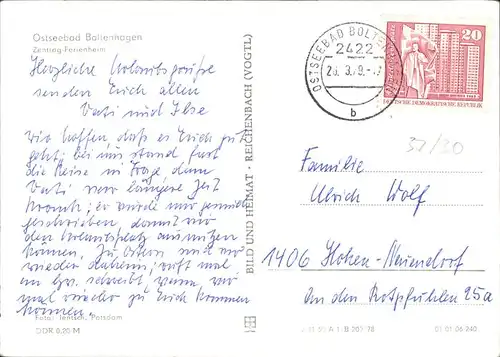 Ostseebad Boltenhagen
Zentrag-Ferienheim
Herzliche Urlaubsgrüße
senden Euch allen
Vati und Ilse
Wir hoffen daß es Euch gut
geht, bei uns stand fast
die Reise in Frage, denn
Vati war längere Zeit
krank, er wurde nur
geschrieben damit wir
den Urlaubsplatz ausnützen
können. Zu Ostern sind wir
wieder daheim, ruft mal
an od. schreibt wann wir
mal wieder zu Euch kommen
können.
Foto: Tentsch, Potsdam
DDR 0,20 M
BILD UND HEIMAT · REICHENBACH (VOGTL)
OSTSEEBAD BOLTENHAGEN
2422
b
20
DEUTSCHE DEMOKRATISCHE REPUBLIK
37/20
Familie
Ulrich Wolf
1406 Hohen-Neuendorf
An den Rotpfuhlen 25a
01 01 06 240